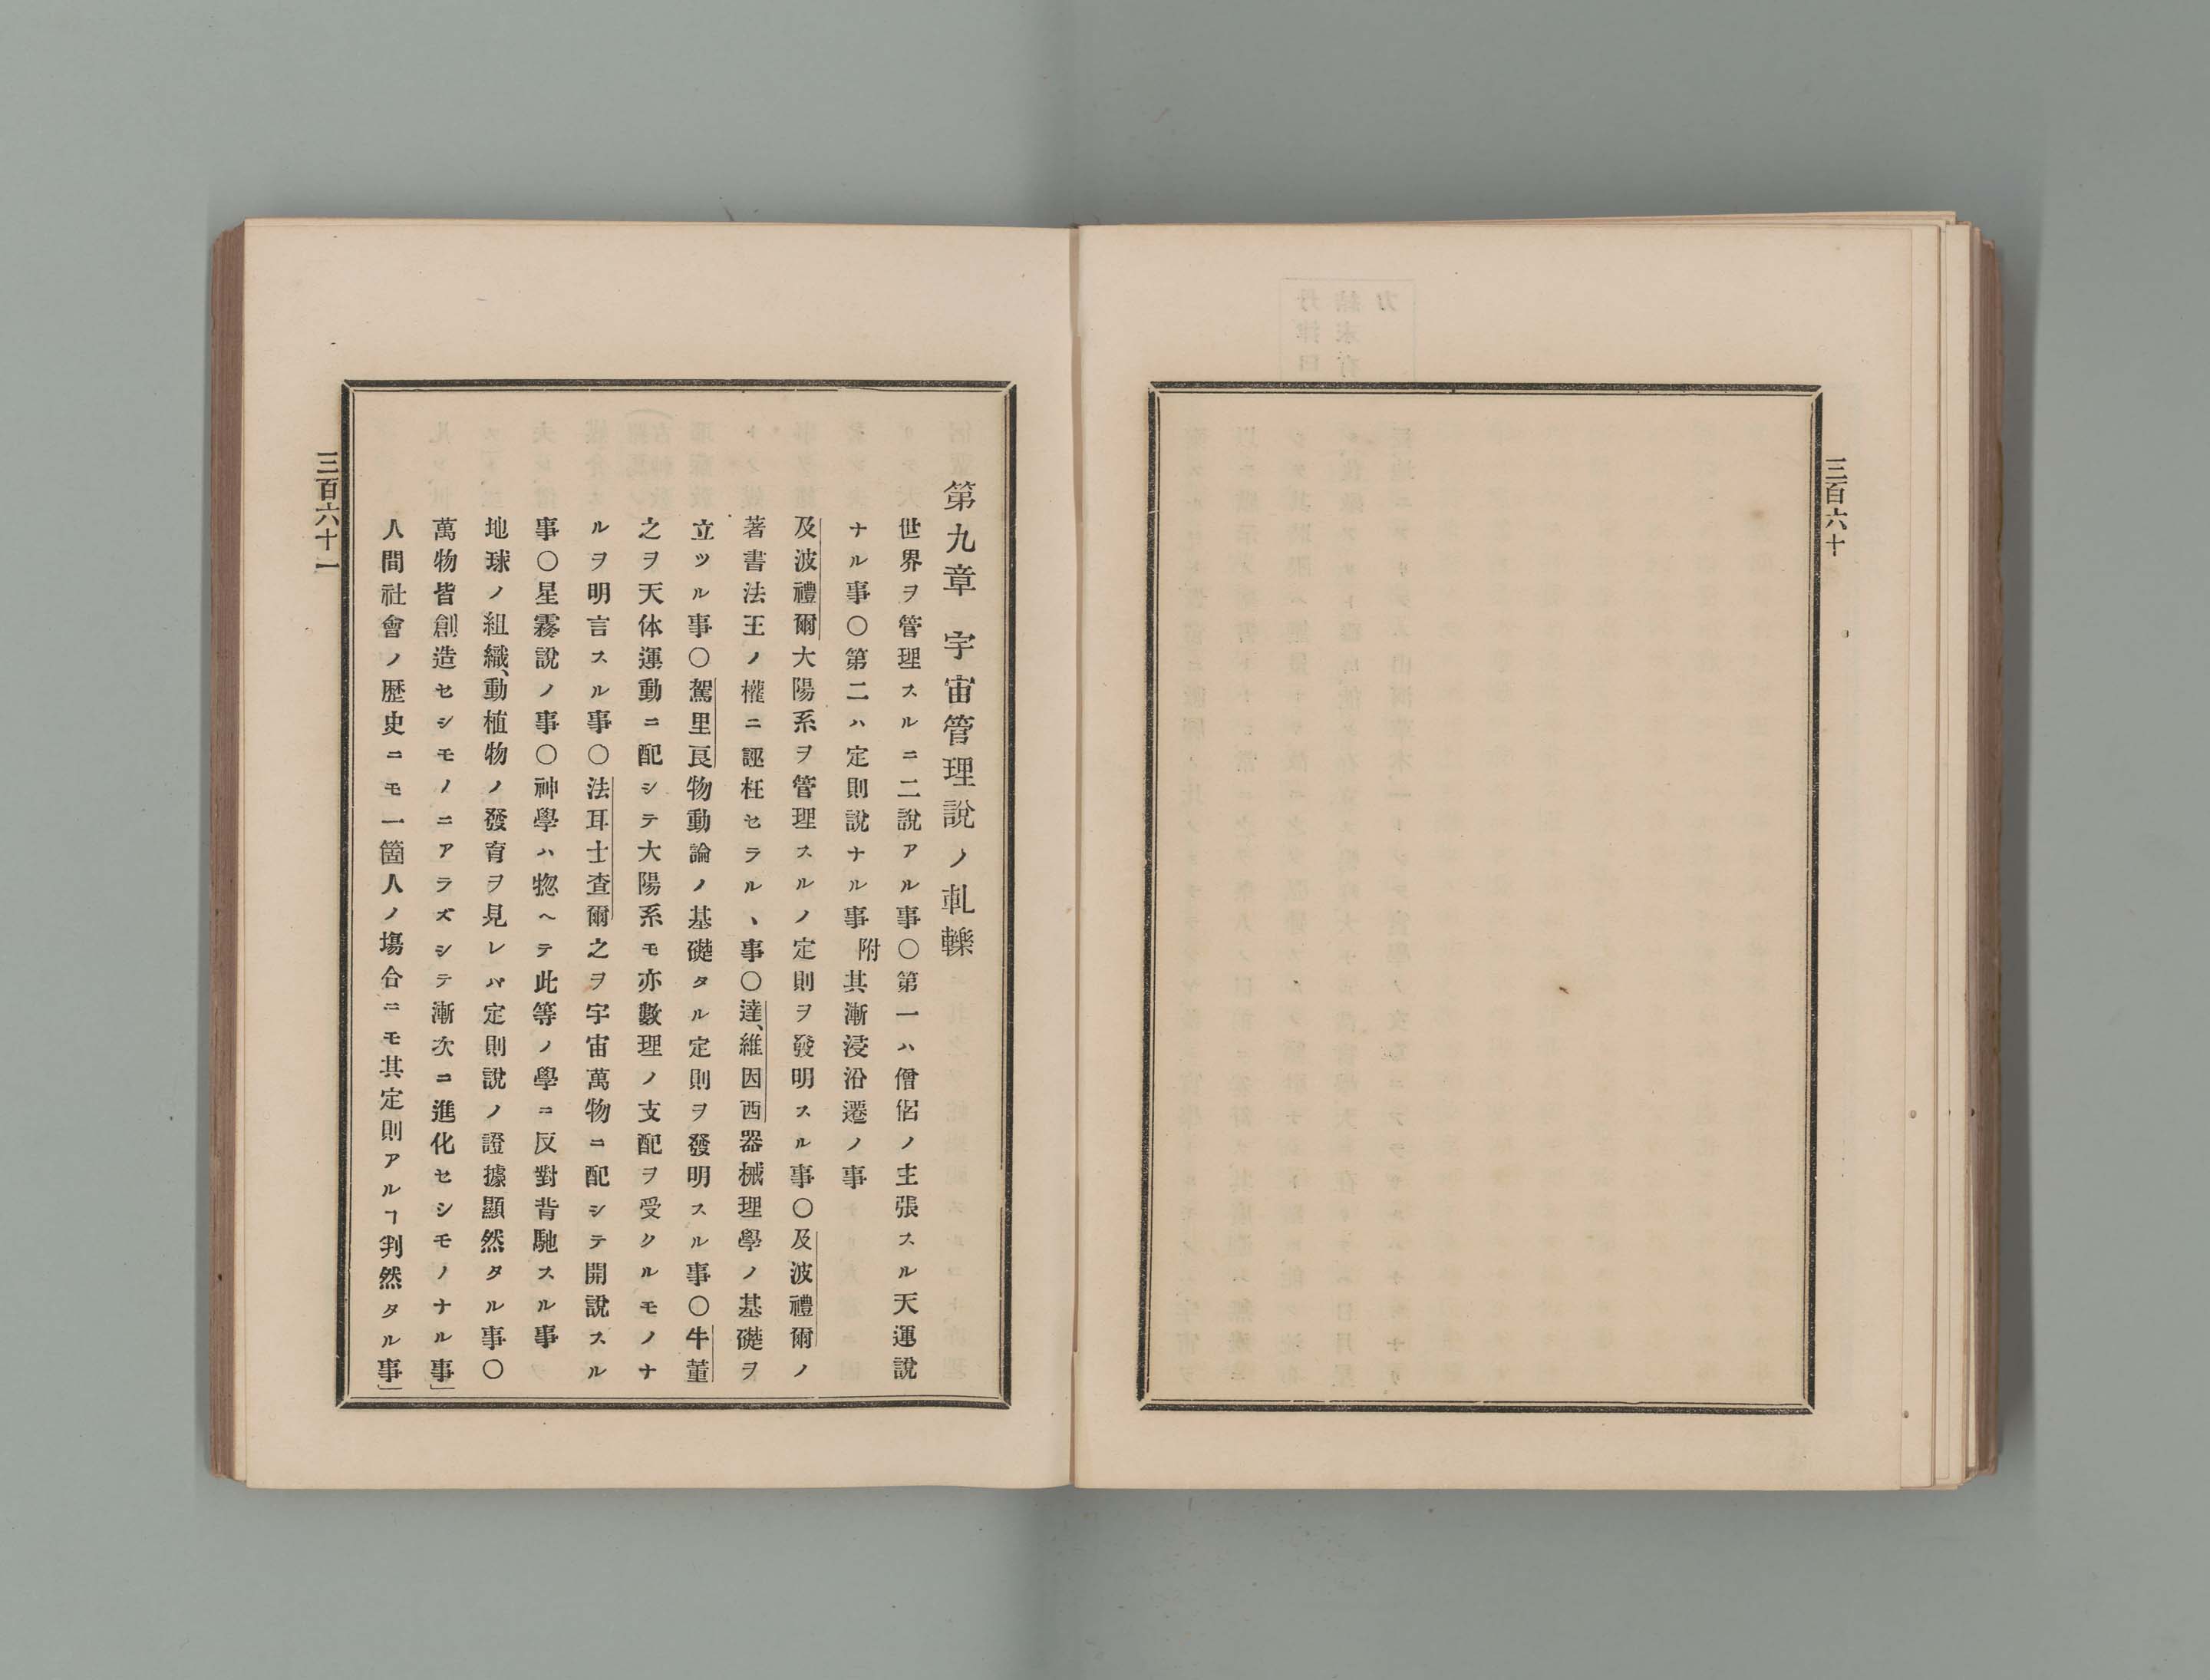 三百六十
第九章 宇宙管理說ノ軋轢
世界ヲ管理スルニ二說アル事〇第一ハ僧侶ノ主張スル天運說
ナル事〇第二ハ定則說ナル事附其漸浸沿遷ノ事
及波禮爾大陽系ヲ管理スルノ定則ヲ發明スル事〇及波禮爾ノ
著書法王ノ權ニ誣枉セラルヽ事〇達、維因西器械理學ノ基礎ヲ
立ツル事〇駕里良物動論ノ基礎タル定則ヲ發明スル事〇牛董
之ヲ天体運動ニ配シテ大陽系モ亦數理ノ支配ヲ受クルモノナ
ルヲ明言スル事〇法耳士查爾之ヲ宇宙萬物ニ配シテ開說スル
事〇星霧說ノ事〇神學ハ惣ヘテ此等ノ學ニ反對背馳スル事
地球ノ組織、動植物ノ發育ヲ見レバ定則說ノ證據顯然タル事〇
萬物皆創造セシモノニアラズシテ漸次ニ進化セシモノナル事」
人間社會ノ歷史ニモ一箇人ノ塲合ニモ其定則アルヿ判然タル事」
三百六十一